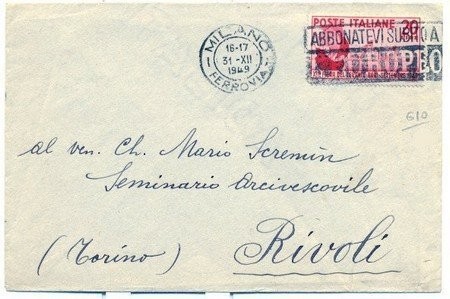 MILANO
16-17
31-XII
1949
FERROVIA
POSTE ITALIANE 20
ABBONATEVI SUBITO A
610
Al ven. Ch. Mario Scremin
Seminario Arcivescovile
Rivoli
(Torino)